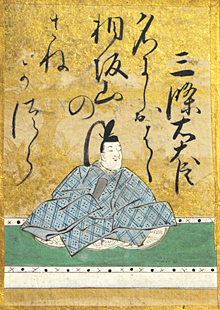 三條右大臣
名にしおはゝ
相坂山の
さね
かつら